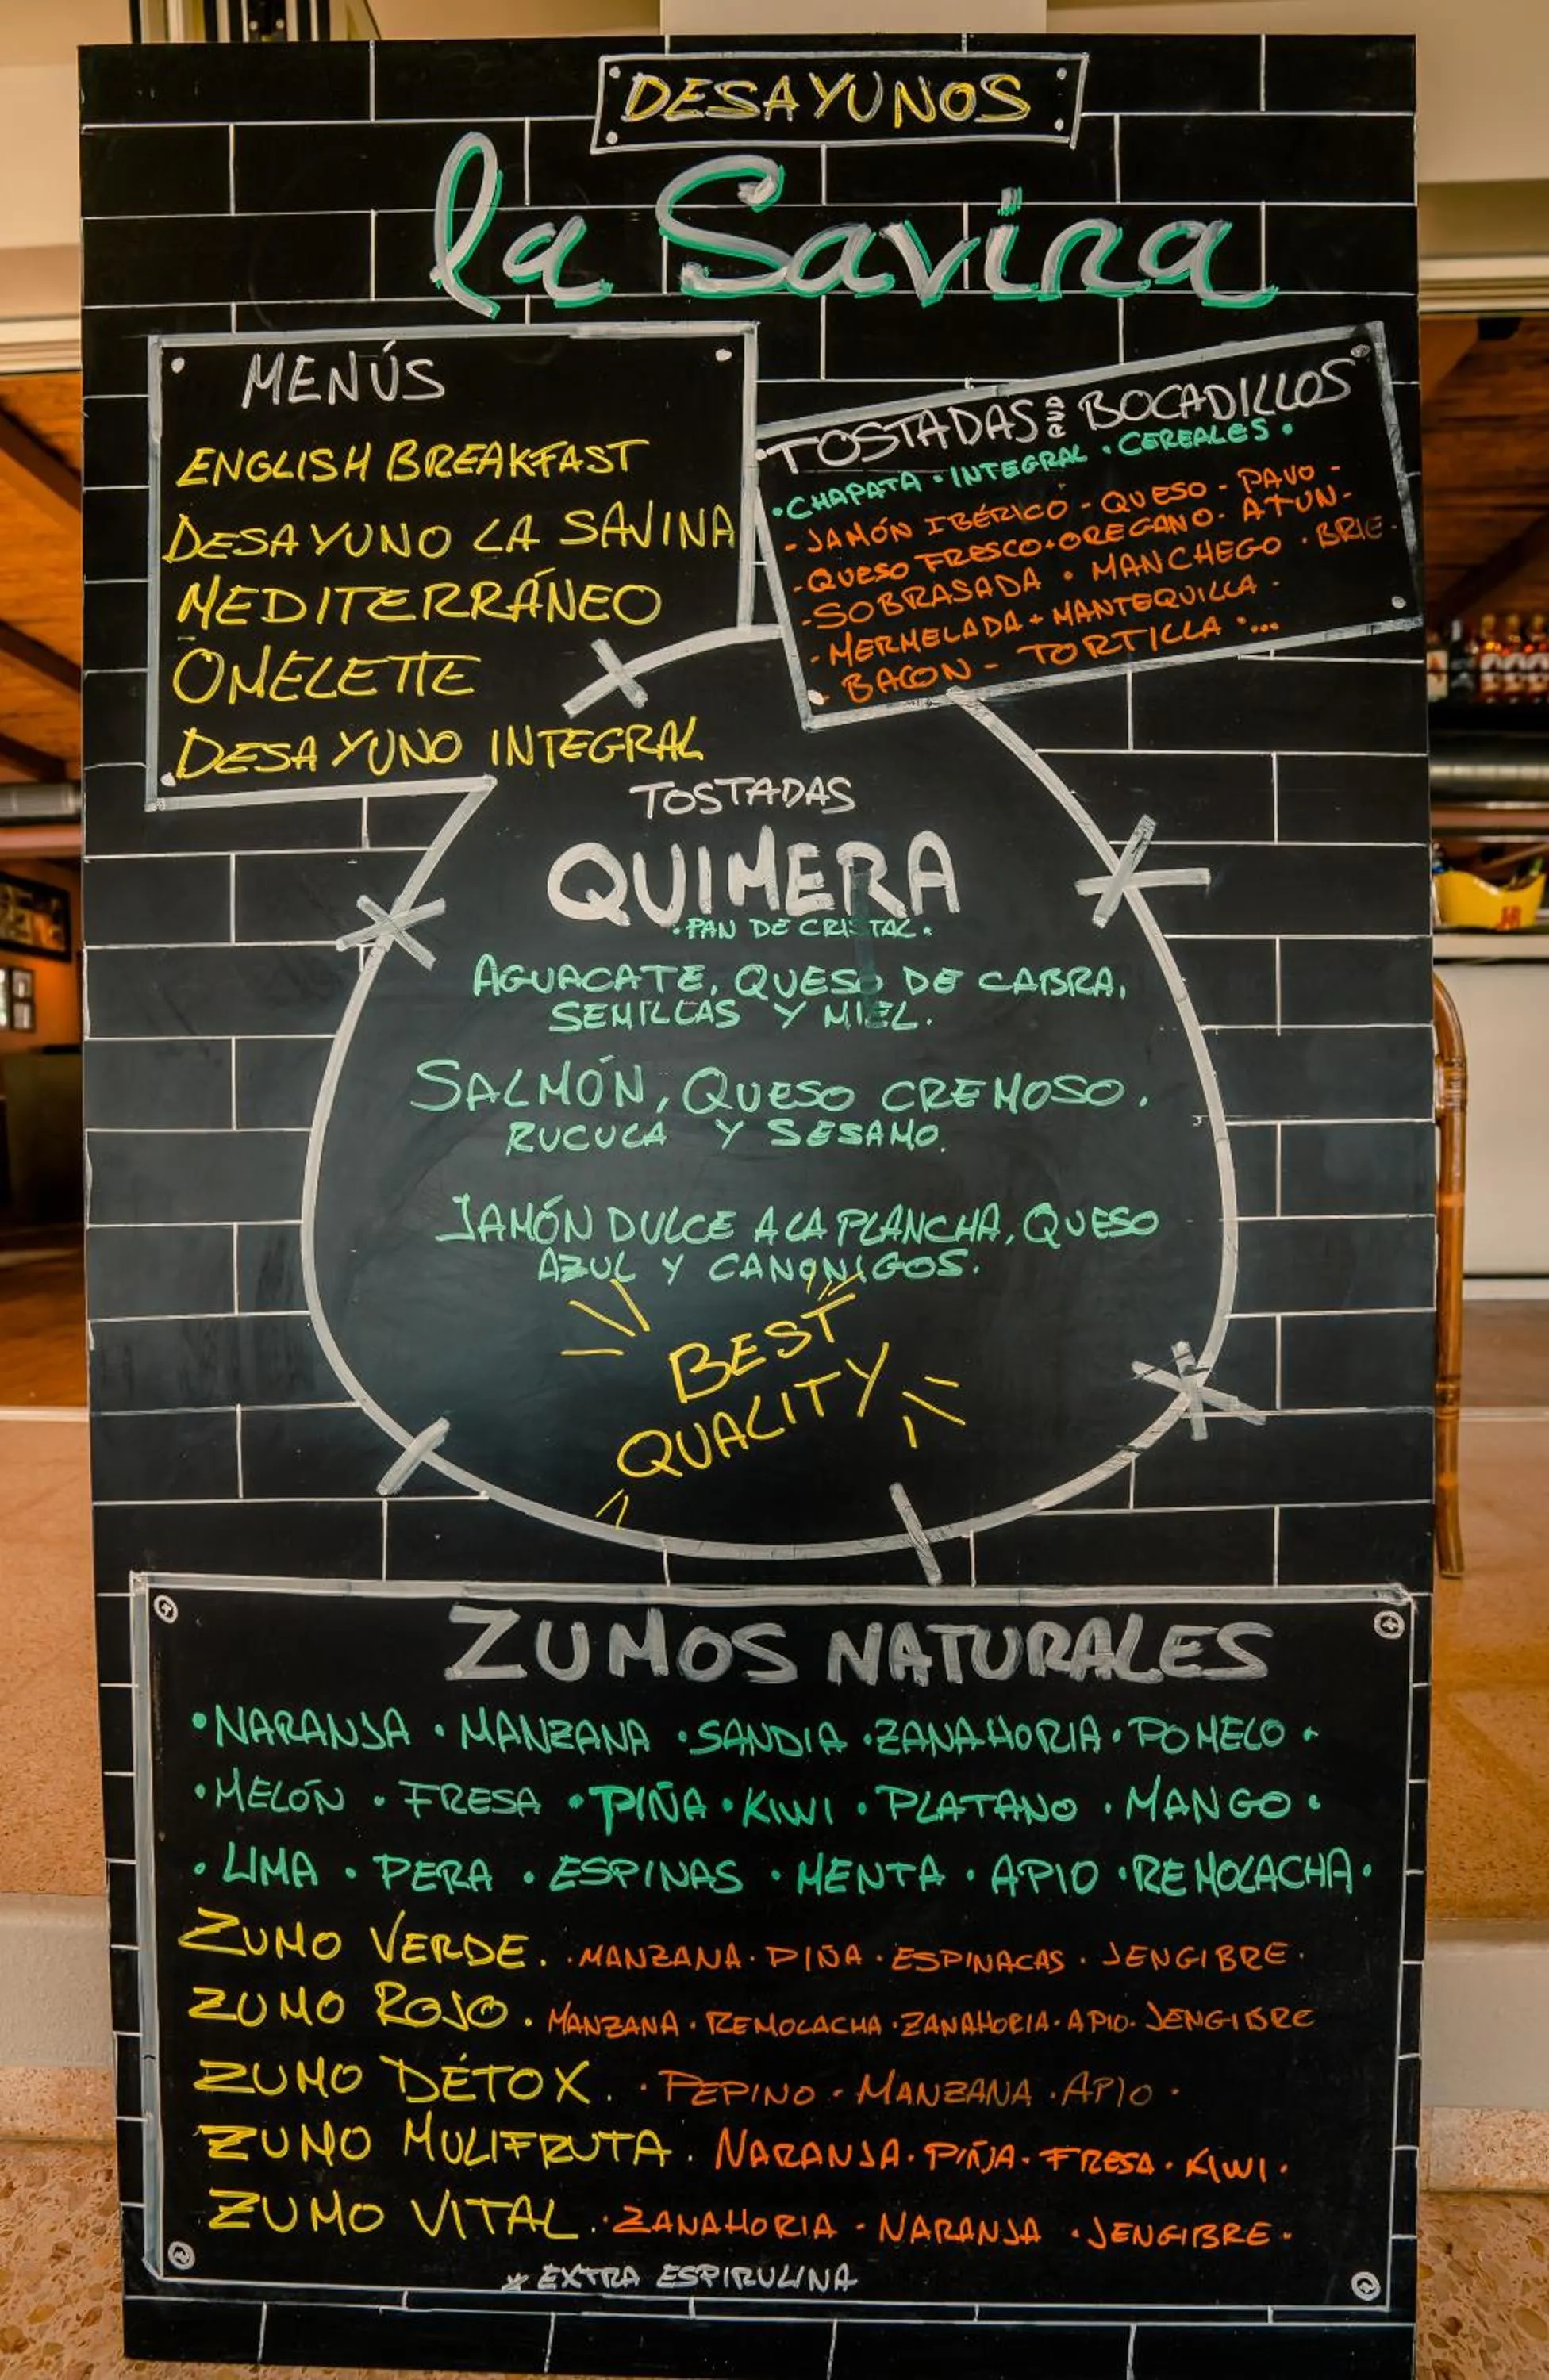 DESAYUNOS
la Savina
MENÚS
ENGLISH BREAKFAST
DESAYUNO LA SAVINA
MEDITERRÁNEO
OMELETTE
DESAYUNO INTEGRAL
TOSTADAS BOCADILLOS
• CHAPATA • INTEGRAL • CEREALES •
- JAMÓN IBÉRICO - QUESO - PAVO -
- QUESO FRESCO + OREGANO - ATUN -
- SOBRASADA • MANCHEGO • BRIE -
- MERMELADA + MANTEQUILLA -
- BACON - TORTILLA • ...
TOSTADAS
QUIMERA
• PAN DE CRISTAL •
AGUACATE, QUESO DE CABRA,
SEMILLAS Y MIEL.
SALMÓN, QUESO CREMOSO,
RUCULA Y SESAMO.
JAMÓN DULCE A LA PLANCHA, QUESO
AZUL Y CANONIGOS.
BEST
QUALITY
ZUMOS NATURALES
• NARANJA • MANZANA • SANDIA • ZANAHORIA • POMELO •
• MELÓN • FRESA • PIÑA • KIWI • PLATANO • MANGO •
• LIMA • PERA • ESPINAS • MENTA • APIO • REMOLACHA •
ZUMO VERDE. • MANZANA • PIÑA • ESPINACAS • JENGIBRE •
ZUMO ROJO. MANZANA • REMOLACHA • ZANAHORIA • APIO • JENGIBRE
ZUMO DÉTOX. • PEPINO • MANZANA • APIO •
ZUMO MULIFRUTA. NARANJA • PIÑA • FRESA • KIWI •
ZUMO VITAL. • ZANAHORIA • NARANJA • JENGIBRE •
* EXTRA ESPIRULINA